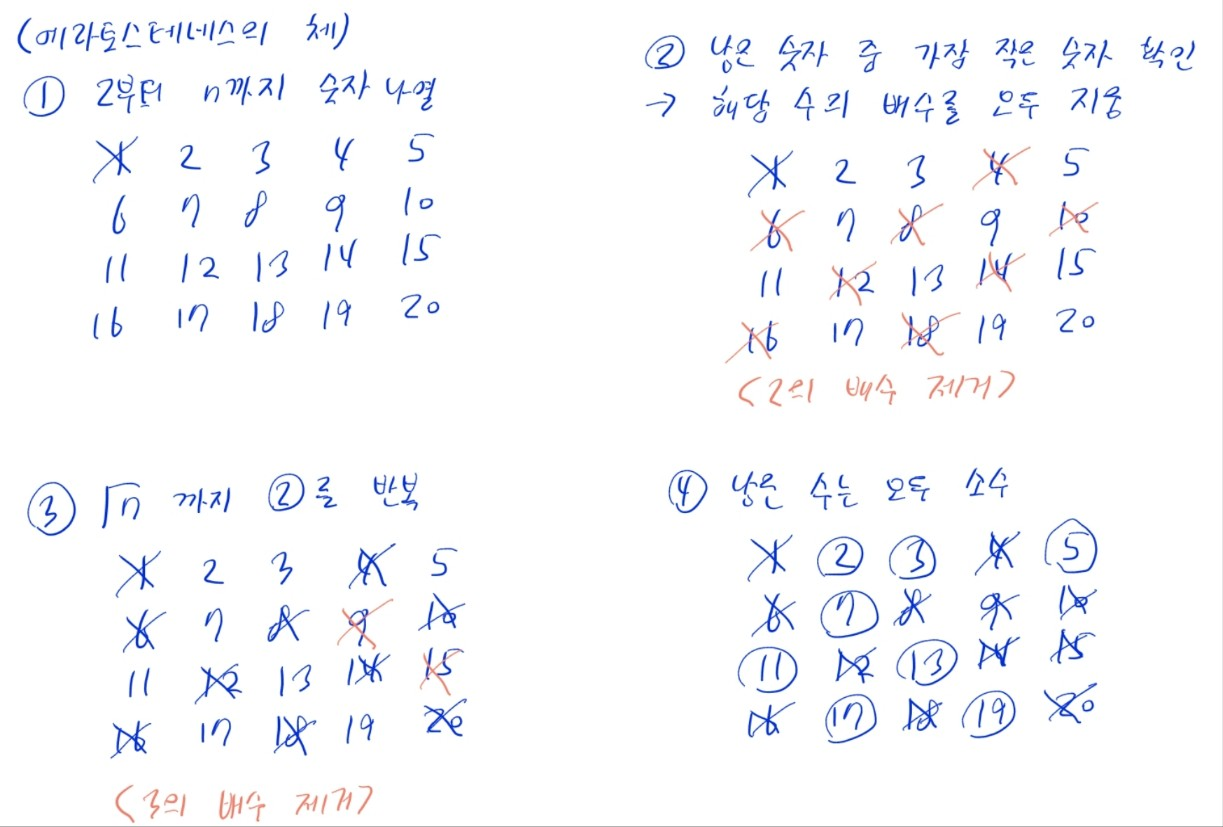 (에라토스테네스의 체)
① 2부터 n까지 숫자 나열
1 2 3 4 5
6 7 8 9 10
11 12 13 14 15
16 17 18 19 20
② 남은 숫자 중 가장 작은 숫자 확인
→ 해당 수의 배수를 모두 지움
1 2 3 4 5
6 7 8 9 10
11 12 13 14 15
16 17 18 19 20
(2의 배수 제거)
③ √n 까지 ②를 반복
1 2 3 4 5
6 7 8 9 10
11 12 13 14 15
16 17 18 19 20
(3의 배수 제거)
④ 남은 수는 모두 소수
1 2 3 4 5
6 7 8 9 10
11 12 13 14 15
16 17 18 19 20